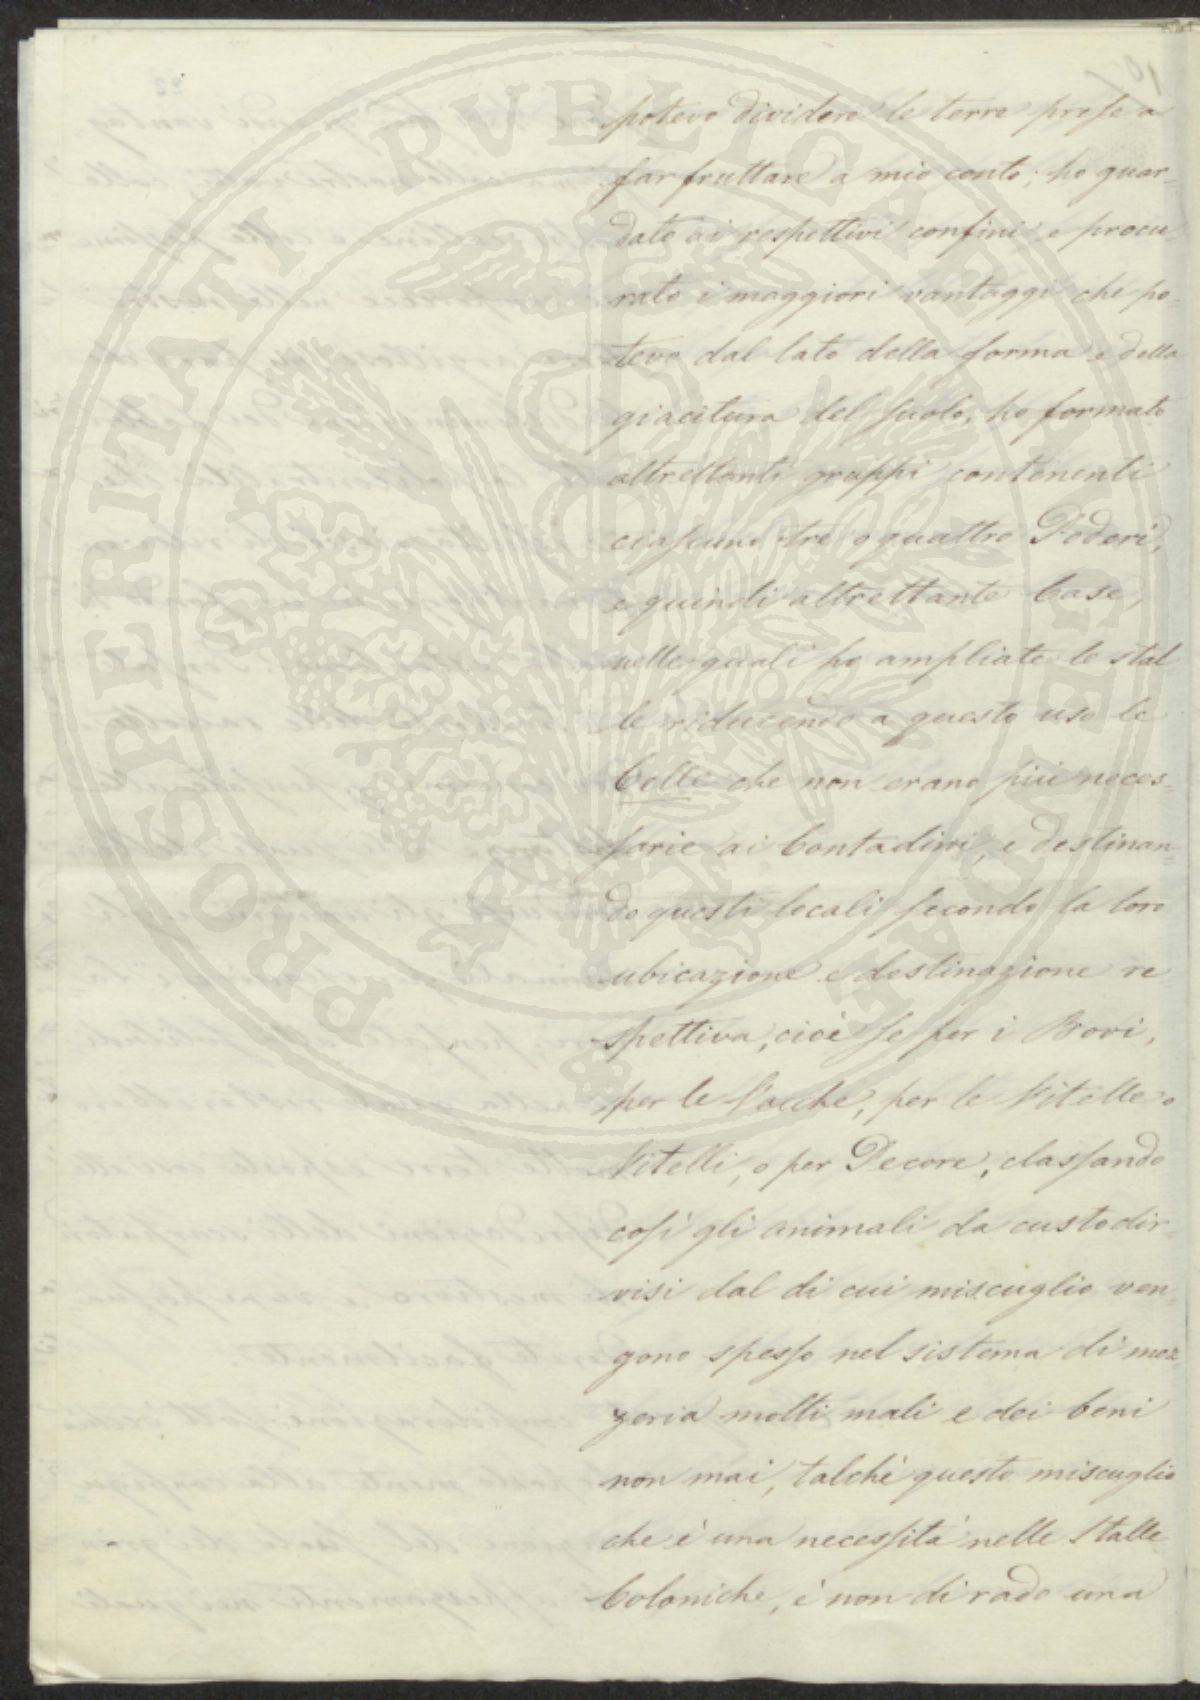 potevo dividere le terre prese a
far fruttare a mio conto; ho guar=
dato ai respettivi confini e procu=
rato i maggiori vantaggi che po=
tevo dal lato della forma e della
giacitura del suolo, ho formato
altrettanti gruppi contenenti
ciascuno tre o quattro Poderi,
e quindi altrettante Case,
nelle quali ho ampliate le stal
le riducendo a questo uso le
Celle che non erano più neces=
sarie ai Contadini, e destinan=
do questi locali secondo la loro
ubicazione e destinazione re
spettiva, cioè se per i Bovi,
per le Vacche, per le Vitelle e
Vitelli, o per Pecore, classando
così gli animali da custodir=
visi dal di cui miscuglio ven=
gono spesso nel sistema di mez=
zeria molti mali e dei beni
non mai, talchè questo miscuglio
che è una necessità nelle Stalle
Coloniche, è non di rado una
PROSPERITATI PVBLICAE AVGENDAE